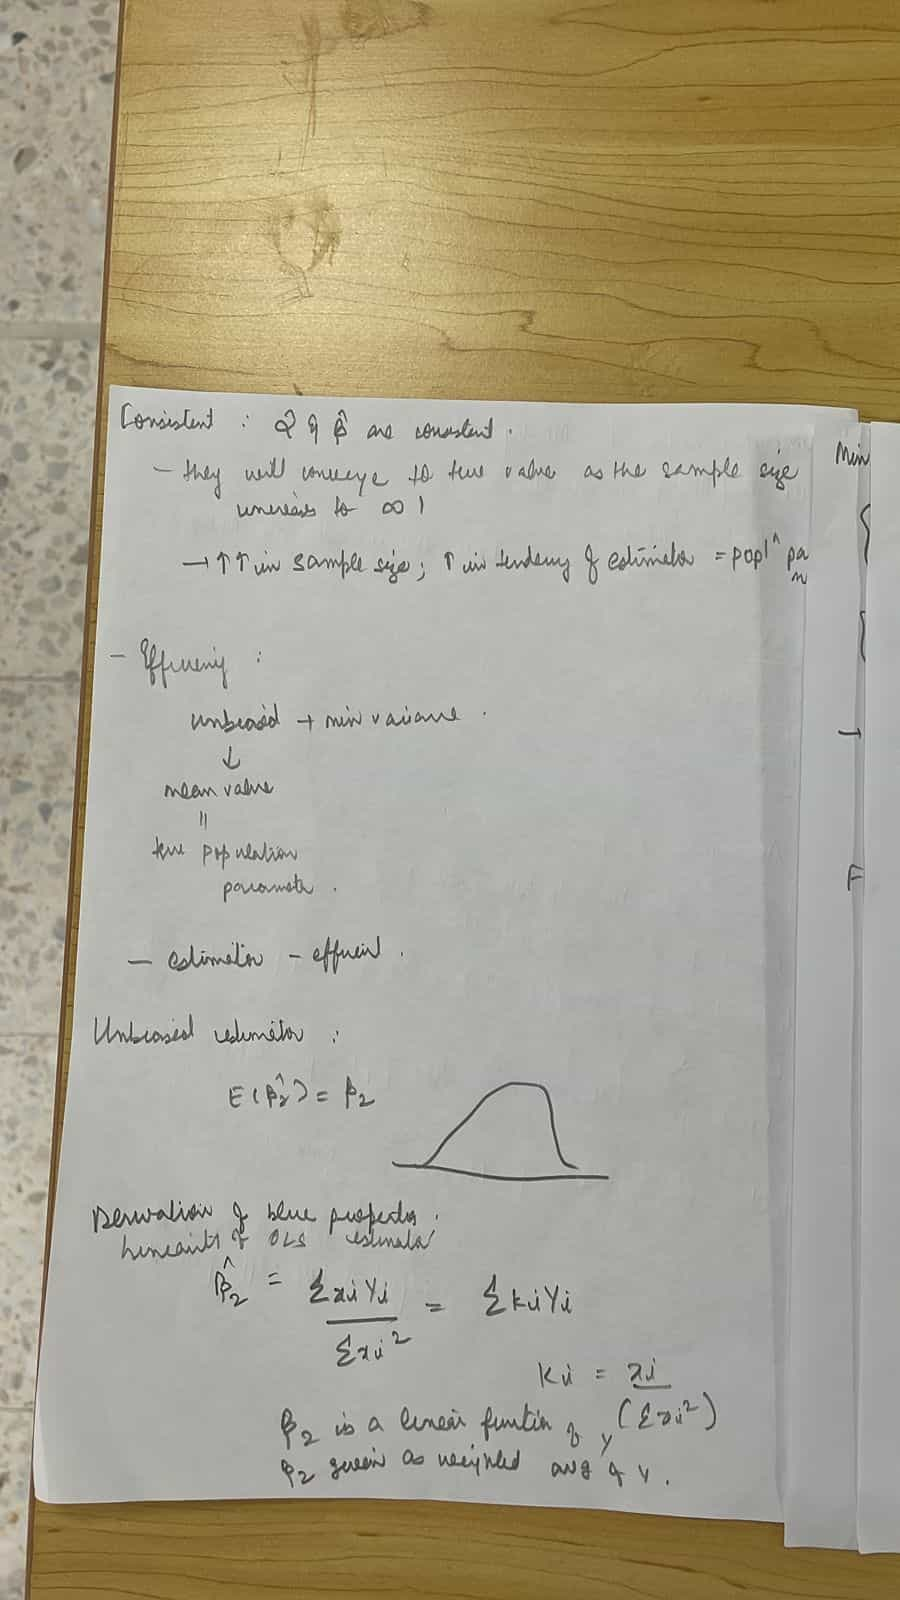 Consistent : α̂ & β̂ are consistent.
- they will converge to true value as the sample size
increases to ∞ !
→ ↑↑ in sample size; ↑ in tendency of estimator = popl^n pa
- Efficiency :
unbiased + min variance.
↓
mean value
=
true population
parameter.
- estimator - efficient.
Unbiased estimator :
E(β̂2) = β2
Derivation of blue properties.
Linearity of OLS estimator
β̂2 = Σxiyi / Σxi² = Σkiyi
ki = xi / (Σxi²)
β2 is a linear function of y
β2 given as weighted avg of y.
Min
F